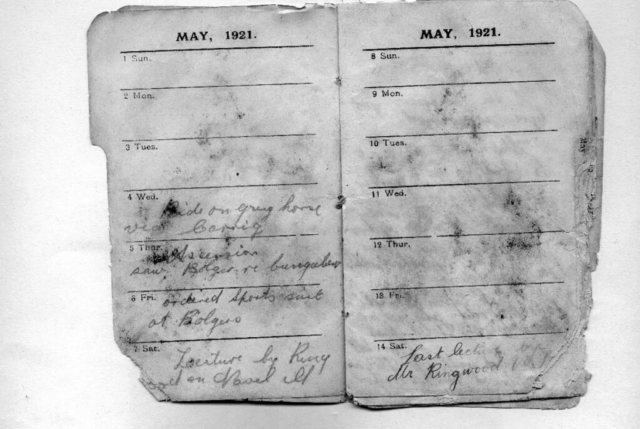 MAY, 1921.
1 Sun.
2 Mon.
3 Tues.
4 Wed.
Ride on grey horse
Carrig
5 Thur.
Ascension
saw Bolger re bungalow
6 Fri. ordered sports suit
at Bolgers
7 Sat.
Lecture by Ring
wood on Naval
MAY, 1921.
8 Sun.
9 Mon.
10 Tues.
11 Wed.
12 Thur.
13 Fri.
14 Sat.
Last lecture
Mr Ringwood